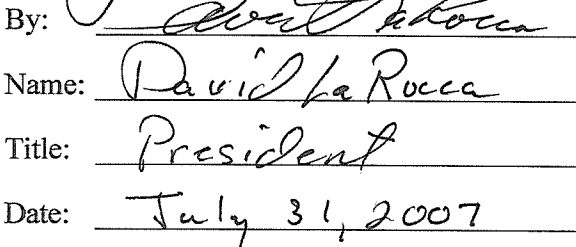 By: David LaRocca
Name: David LaRocca
Title: President
Date: July 31, 2007